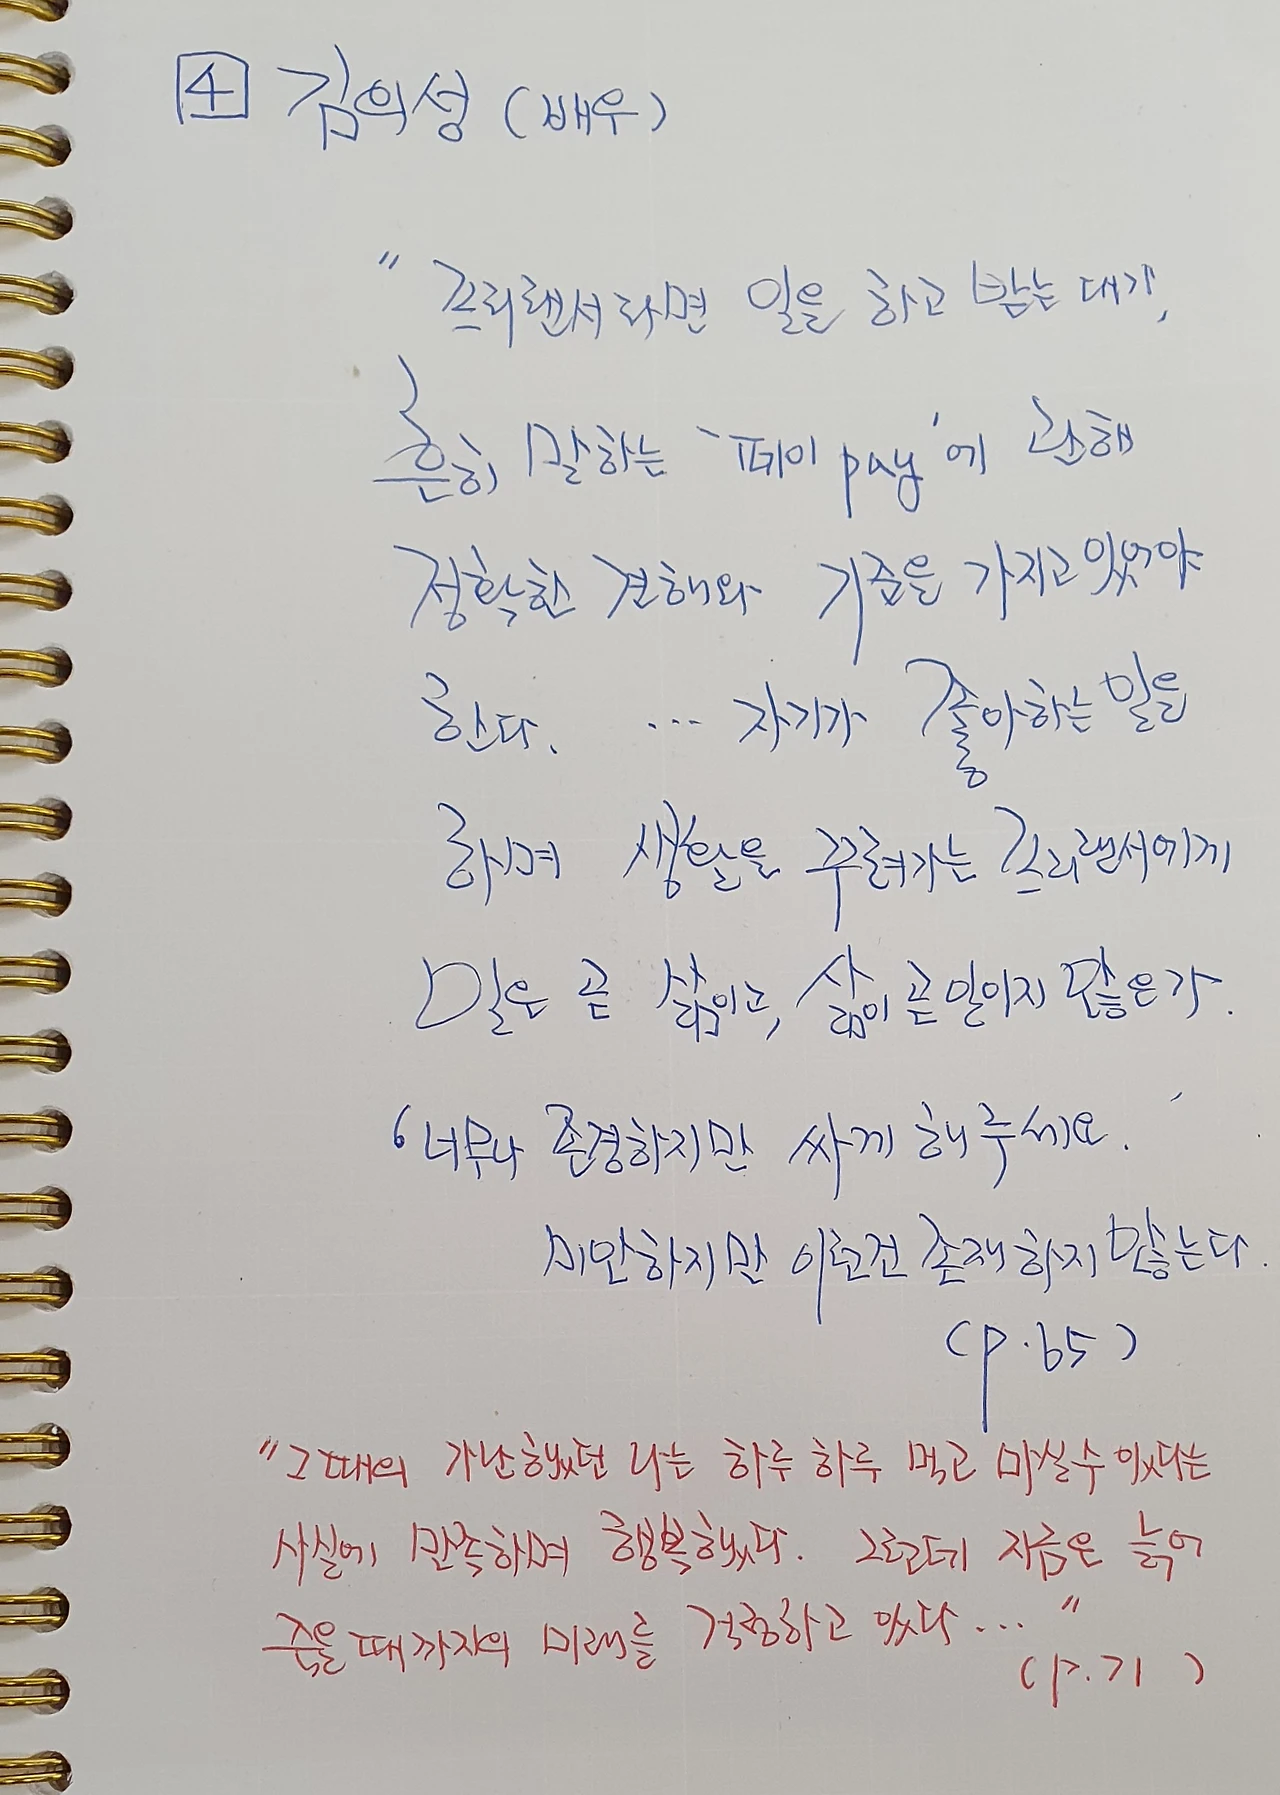 4 김의성 (배우)
" 프리랜서라면 일을 하고 받는 대가,
흔히 말하는 '페이 pay'에 관해
정확한 견해와 기준을 가지고 있어야
한다. ... 자기가 좋아하는 일을
하며 생활을 꾸려가는 프리랜서에게
일은 곧 삶이고, 삶이 곧 일이지 않은가.
'너무나 존경하지만 싸게 해주세요.'
미안하지만 이런건 존재하지 않는다.
(p.65)
"그때의 가난했던 나는 하루 하루 먹고 마실수 있다는
사실에 만족하며 행복했다. 그런데 지금은 늙어
죽을때까지의 미래를 걱정하고 있다..."
(p.71)